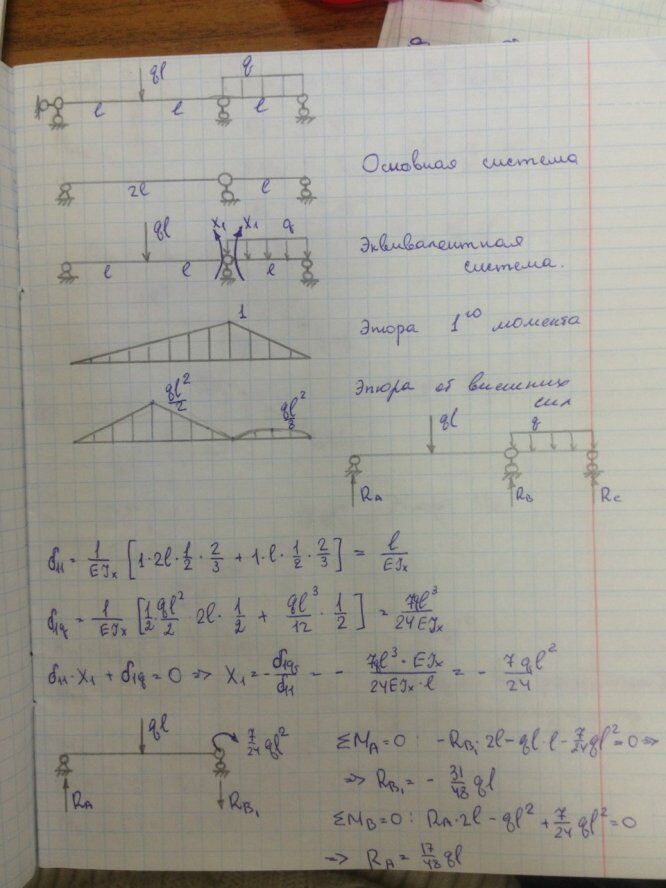 ql q
l l l
Основная система
2l l
ql X₁ X₁ q
l l l
Эквивалентная
система.
1
Эпюра 1го момента
ql²/2 ql²/8
Эпюра от внешних
сил
ql q
R_A R_B R_C
δ₁₁ = 1/EJₓ [1·2l·1/2·2/3 + 1·l·1/2·2/3] = l/EJₓ
δ₁q = 1/EJₓ [1/2·ql²/2·2l·1/2 + ql³/12·1/2] = 7ql³/24EJₓ
δ₁₁·X₁ + δ₁q = 0 => X₁ = -δ₁q/δ₁₁ = - 7ql³·EJₓ/24EJₓ·l = - 7ql²/24
ql 7/24 ql²
R_A R_B₁
ΣM_A = 0: -R_B₁·2l - ql·l - 7/24 ql² = 0 =>
=> R_B₁ = - 31/48 ql
ΣM_B = 0: R_A·2l - ql² + 7/24 ql² = 0
=> R_A = 17/48 ql